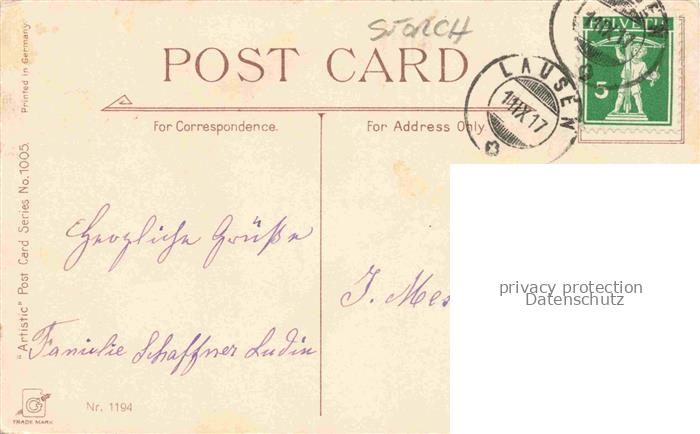 STORCH
POST CARD
For Correspondence.
For Address Only.
HELVETIA
5
LAUSEN
11 IX 17
Herzliche Grüße
Familie Schaffner Ludin
J. Mes
privacy protection
Datenschutz
"Artistic" Post Card Series No. 1005.
Printed in Germany
TRADE MARK
Nr. 1194